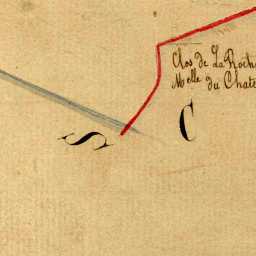 Clos de La Roche
Melle du Chate
S
C